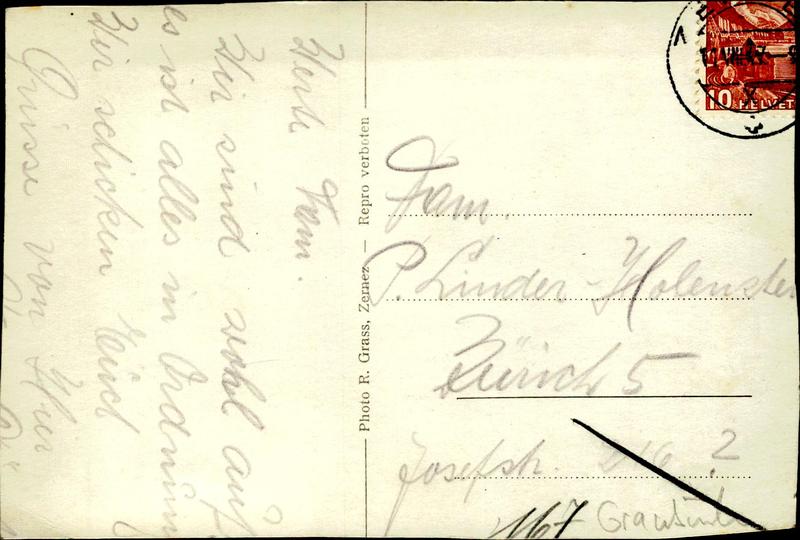 Werte Fam.
Wir sind wohl auf.
es ist alles in Ordnung
Wir schicken Euch
Grüsse von Hier
Photo R. Grass, Zernez — Repro verboten
10 HELVET
Fam.
P. Linder-Holenste
Zürich 5
Josefstr. 2
1167 Graubünd